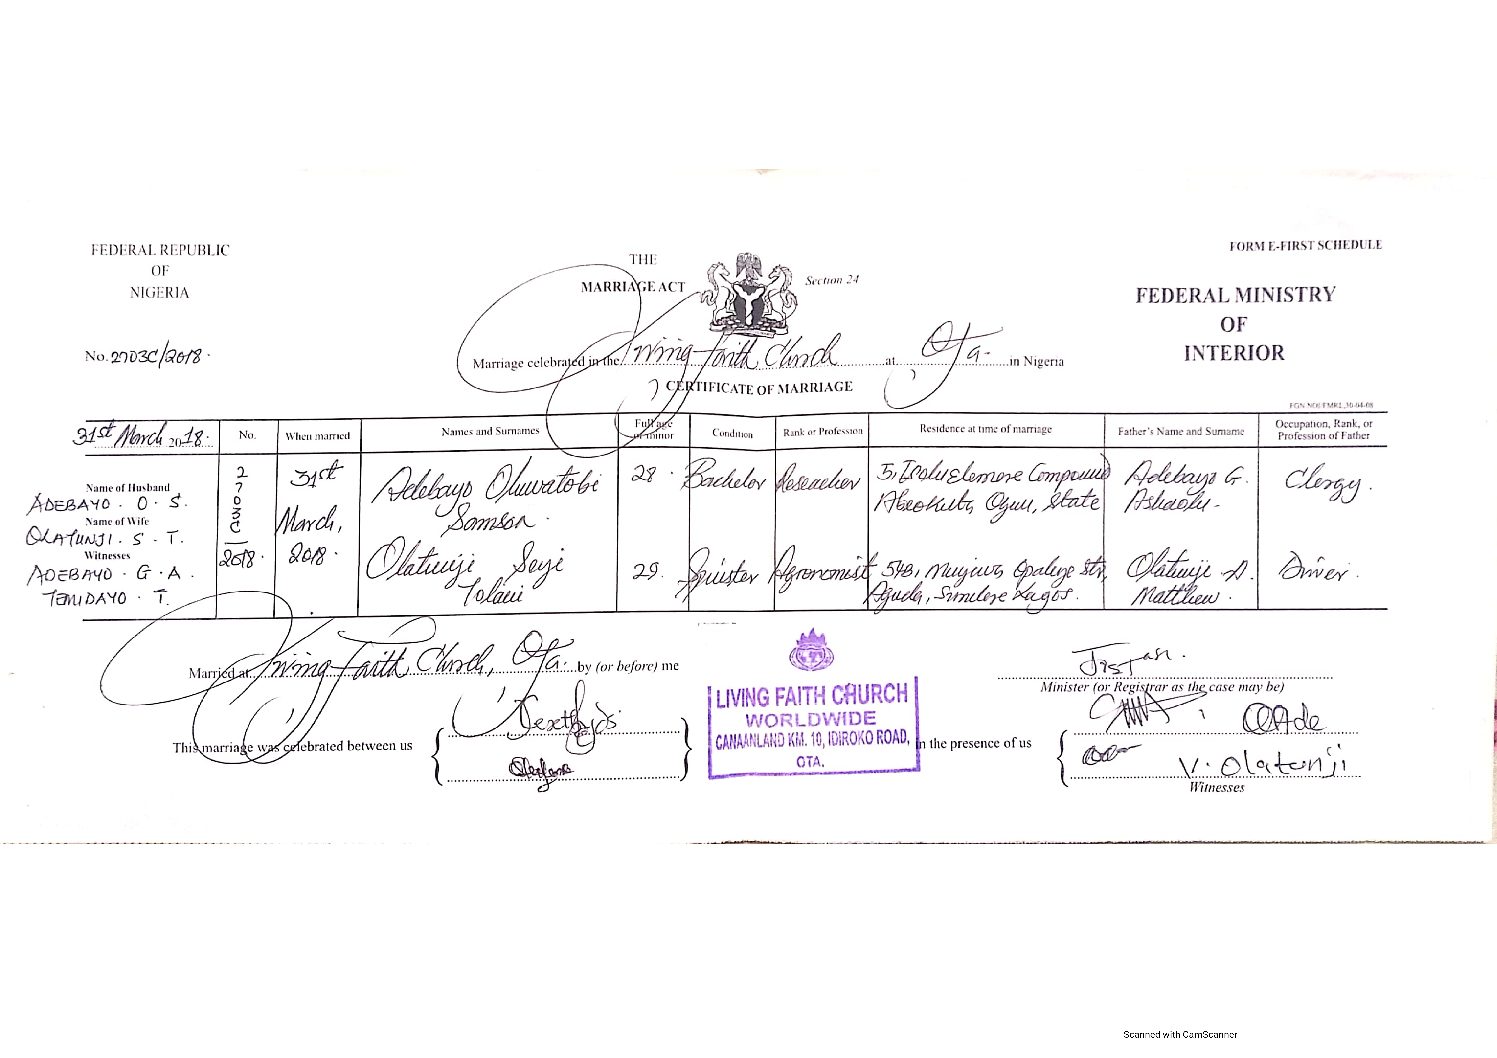 FEDERAL REPUBLIC
OF
NIGERIA
THE
MARRIAGE ACT
Section 24
FORM E-FIRST SCHEDULE
FEDERAL MINISTRY
OF
INTERIOR
No. 2703C/2018.
Marriage celebrated in the Living Faith Church at Ota. in Nigeria
CERTIFICATE OF MARRIAGE
31st March 2018.
No.
When married
Names and Surnames
Full age or minor
Condition
Rank or Profession
Residence at time of marriage
Father's Name and Surname
Occupation, Rank, or Profession of Father
Name of Husband
ADEBAYO. O. S.
Name of Wife
OLATUNJI. S. T.
Witnesses
ADEBAYO. G. A.
TEMIDAYO. T.
2703C/2018.
31st March, 2018.
Adebayo Oluwatobi Samson.
28.
Bachelor
Reseacher
Compound Abeokuta, Ogun, State
Adebayo G.
Clergy.
Olatunji Seyi
29.
Spinster
Agronomist
54B, Str, Aguda, Surulere Lagos.
Olatunji A. Matthew.
Driver.
Married at Living Faith Church, Ota. by (or before) me
Minister (or Registrar as the case may be)
This marriage was celebrated between us
LIVING FAITH CHURCH
WORLDWIDE
CANAANLAND KM. 10, IDIROKO ROAD,
OTA.
in the presence of us
V. Olatunji
Witnesses
Scanned with CamScanner